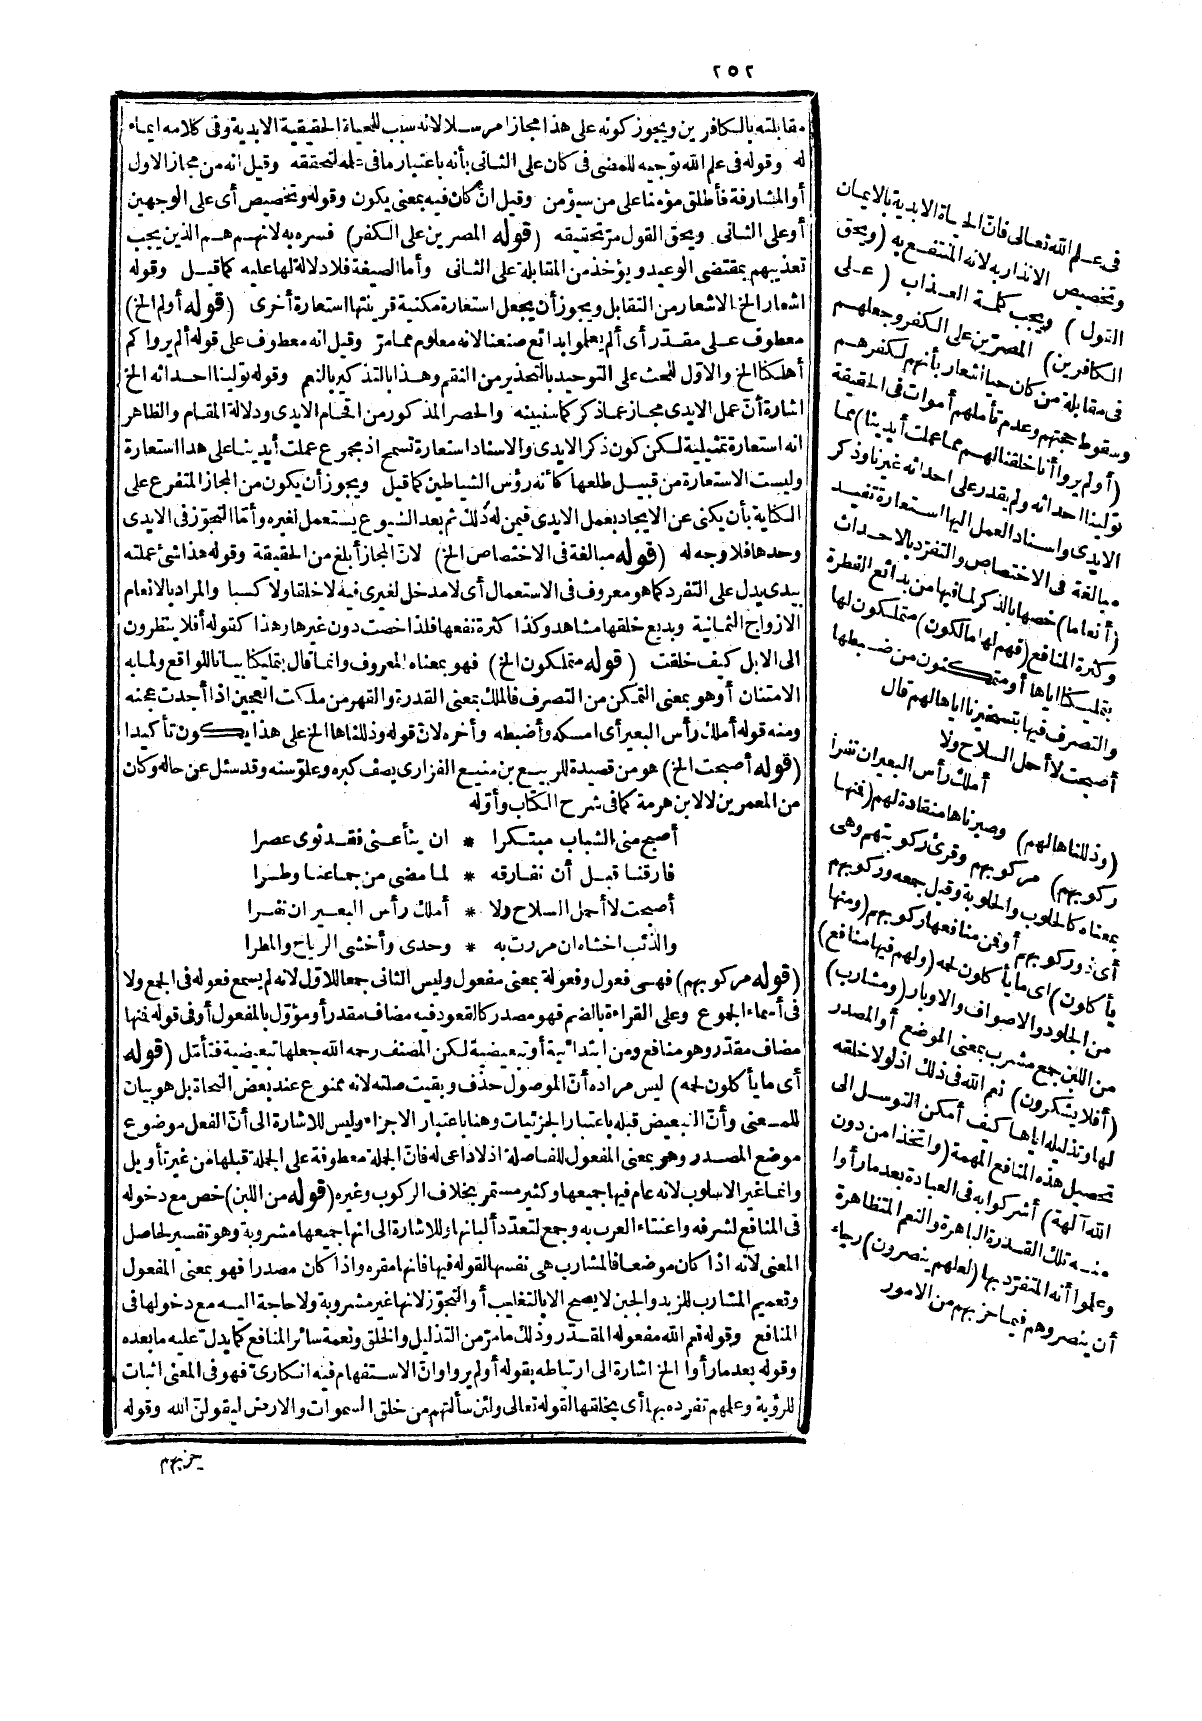 ٢٥٢
مقابلته بالكافرين ويجوز كونه على هذا مجازا مرسلا لانه سبب للحياة الحقيقية الابدية وفى كلامه ايماء
له وقوله فى علم الله توجيه للمضى فى كان على الثانى بأنه باعتبار ما فى علمه لتحققه وقيل انه من مجاز الاول
أو المشارفة فأطلق مؤمنا على من سيؤمن وقيل انّ كان فيه بمعنى يكون وقوله وتخصيص أى على الوجهين
أو على الثانى ويحق القول مرّ تحقيقه (قوله المصرين على الكفر) فسره به لانهم هم الذين يجب
تعذيبهم بمقتضى الوعيد ويؤخذ من المقابلة على الثانى وأما الصيغة فلا دلالة لها عليه كما قيل وقوله
اشعار الخ الاشعار من التقابل ويجوز أن يجعل استعارة مكنية قرينتها استعارة أخرى (قوله أولم الخ)
معطوف على مقدر أى ألم يعلموا بدائع صنعنا لانه معلوم مما مرّ وقيل انه معطوف على قوله ألم يروا كم
أهلكنا الخ والاوّل للحث على التوحيد بالتحذير من النقم وهذا بالتذكير بالنعم وقوله تولينا احداثه الخ
اشارة أنّ عمل الايدى مجاز عما ذكر كما سنبينه والحصر المذكور من اقحام الايدى ودلالة المقام والظاهر
انه استعارة تمثيلية لكن كون ذكر الايدى والاسناد استعارة تسمح اذ مجموع عملت أيدينا على هذا استعارة
وليست الاستعارة من قبيل طلعها كأنه رؤس الشياطين كما قيل ويجوز أن يكون من المجاز المتفرع على
الكناية بأن يكنى عن الايجاد بعمل الايدى فيمن له ذلك ثم بعد الشيوع يستعمل لغيره وأمّا التجوّز فى الايدى
وحدها فلا وجه له (قوله مبالغة فى الاختصاص الخ) لانّ المجاز أبلغ من الحقيقة وقوله هذا شئ عملته
بيدى يدل على التفرد كما هو معروف فى الاستعمال أى لا مدخل لغيرى فيه لا خلقا ولا كسبا والمراد بالانعام
الازواج الثمانية وبديع خلقها مشاهد وكذا كثرة نفعها فلذا خصت دون غيرها وهذا كقوله أفلا ينظرون
الى الابل كيف خلقت (قوله متملكون الخ) فهو بمعناه المعروف وانما قال بتمليكنا بيانا للواقع ولما به
الامتنان أو هو بمعنى التمكن من التصرف فالملك بمعنى القدرة والقهر من ملكت العجين اذا أجدت عجنه
ومنه قوله أملك رأس البعير أى امسكه وأضبطه وأخره لان قوله وذللناها الخ على هذا يكون تأكيدا
(قوله أصبحت الخ) هو من قصيدة للربيع بن منيع الفزارى يصف كبره وعلوّ سنه وقد سئل عن حاله وكان
من المعمرين لا لابن هرمة كما فى شرح الكتاب وأوّله
أصبح منى الشباب مبتكرا * ان ينأ عنى فقد ثوى عصرا
فارقنا قبل أن نفارقه * لما مضى من جماعنا وطرا
أصبحت لا أحمل السلاح ولا * أملك رأس البعير ان نفرا
والذئب اخشاه ان مررت به * وحدى وأخشى الرياح والمطرا
(قوله مركوبهم) فهى فعول وفعولة بمعنى مفعول وليس الثانى جمعا للاول لانه لم يسمع فعوله فى الجمع ولا
فى أسماء الجموع وعلى القراءة بالضم فهو مصدر كالقعود فيه مضاف مقدر أو مؤوّل بالمفعول أو فى قوله فمنها
مضاف مقدر وهو منافع ومن ابتدائية أو تبعيضية لكن المصنف رحمه الله جعلها تبعيضية فتأمّل (قوله
أى ما يأكلون لحمه) ليس مراده أنّ الموصول حذف وبقيت صلته لانه ممنوع عند بعض النحاة بل هو بيان
للمعنى وأنّ التبعيض قبله باعتبار الجزئيات وهنا باعتبار الاجزاء وليس للاشارة الى أنّ الفعل موضوع
موضع المصدر وهو بمعنى المفعول للفاصلة اذ لا داعى له فانّ الجملة معطوفة على الجملة قبلها من غير تأويل
وانما غير الاسلوب لانه عام فيها جميعها وكثير مستمر بخلاف الركوب وغيره (قوله من اللبن) خص مع دخوله
فى المنافع لشرفه واعتناء العرب به وجمع لتعدّد ألبانها وللاشارة الى انها جميعها مشروبة وهو تفسير لحاصل
المعنى لانه اذا كان موضعا فالمشارب هى نفسها لقوله فيها فانها مقره واذا كان مصدرا فهو بمعنى المفعول
وتعميم المشارب للزبد والجبن لا يصح الا بالتغليب أو التجوّز لانها غير مشروبة ولا حاجة اليه مع دخولها فى
المنافع وقوله نعم الله مفعوله المقدر وذلك ما مرّ من التذليل والخلق ونعمة سائر المنافع كما يدل عليه ما بعده
وقوله بعد ما رأوا الخ اشارة الى ارتباطه بقوله أولم يروا وانّ الاستفهام فيه انكارىّ فهو فى المعنى اثبات
للرؤية وعلمهم تفرده بها أى بخلقها لقوله تعالى ولئن سألتهم من خلق السموات والارض ليقولنّ الله وقوله
حزبهم
فى علم الله تعالى فانّ الحياة الابدية بالايمان
وتخصيص الانذار به لانه المنتفع به (ويحق
القول) ويجب كلمة العذاب (على
الكافرين) المصرّين على الكفر وجعلهم
فى مقابلة من كان حيا اشعار بأنهم لكفرهم
وسقوط حجتهم وعدم تأملهم أموات فى الحقيقة
(أولم يروا أنا خلقنا لهم مما عملت أيدينا) مما
تولينا احداثه ولم يقدر على احداثه غيرنا وذكر
الايدى واسناد العمل اليها استعارة تفيد
مبالغة فى الاختصاص والتفرّد بالاحداث
(أنعاما) خصها بالذكر لما فيها من بدائع الفطرة
وكثرة المنافع (فهم لها مالكون) متملكون لها
بتمليكنا اياها أو متمكنون من ضبطها
والتصرف فيها بتسخيرنا اياها لهم قال
أصبحت لا أحمل السلاح ولا
أملك رأس البعير ان نفرا
(وذللناها لهم) وصيرناها منقادة لهم (فمنها
ركوبهم) مركوبهم وقرئ ركوبتهم وهى
بمعناه كالحلوب والحلوبة وقيل جمعه وركوبهم
أى ذو ركوبهم أو فمن منافعها ركوبهم (ومنها
يأكلون) اى ما يأكلون لحمه (ولهم فيها منافع)
من الجلود والاصواف والاوبار (ومشارب)
من اللبن جمع مشرب بمعنى الموضع أو المصدر
(أفلا يشكرون) نعم الله فى ذلك اذ لولا خلقه
لها وتذليله اياها كيف أمكن التوسل الى
تحصيل هذه المنافع المهمة (واتخذوا من دون
الله آلهة) أشركوا به فى العبادة بعد ما رأوا
منه تلك القدرة الباهرة والنعم المتظاهرة
وعلموا أنه المتفرّد بها (لعلهم ينصرون) رجاء
أن ينصروهم فيما حزبهم من الامور